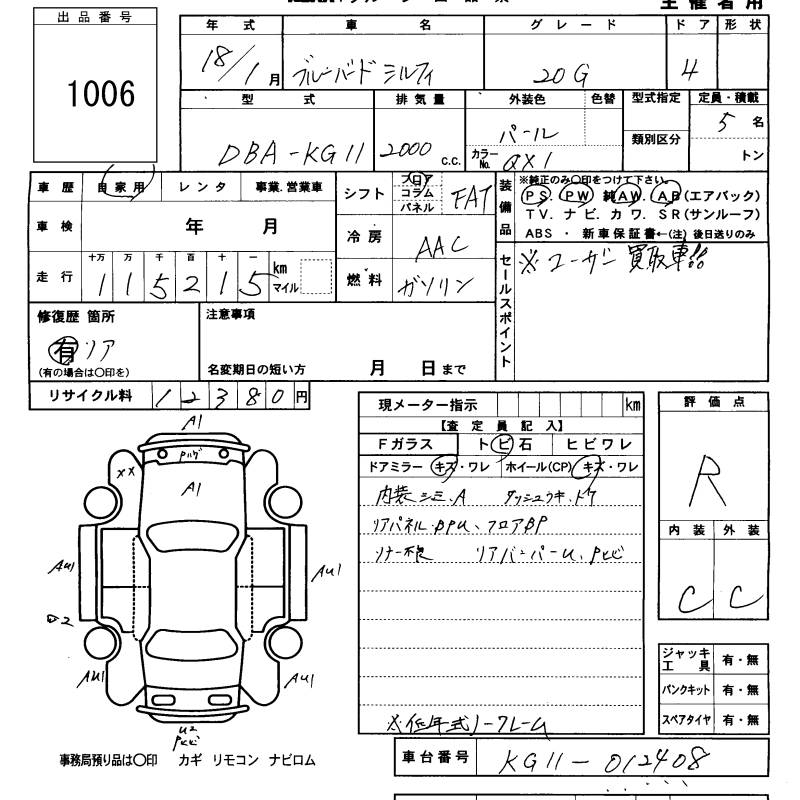 主催者用
出品番号
1006
年式 車名 グレード ドア 形状
18/1月 ブルーバード シルフィ 20G 4
型式 排気量 外装色 色替 型式指定 定員・積載
DBA-KG11 2000 c.c. パール カラーNo. QX1 類別区分 5名 トン
車歴 自家用 レンタ 事業.営業車 シフト フロア コラム パネル FAT
車検 年 月 冷房 AAC
走行 十万 万 千 百 十 一 km マイル 燃料 ガソリン
115215
装備品 ※純正のみ〇印をつけて下さい。
PS. PW 純AW. AB(エアバック)
TV. ナビ. カワ. SR(サンルーフ)
ABS ・ 新車保証書←(注) 後日送りのみ
セールスポイント ※ユーザー買取車!!
修復歴 箇所 注意事項
有 リア
(有の場合は〇印を) 名変期日の短い方 月 日まで
リサイクル料 12380円
現メーター指示 km
【査定員記入】
Fガラス トビ石 ヒビワレ
ドアミラー キズ・ワレ ホイール(CP) キズ・ワレ
内装シミ.A ダッシュウキ.
リアパネル.BPU、フロアBP
リアバンパーU、
※低年式ノークレーム
評価点
R
内装 外装
C C
ジャッキ工具 有・無
パンクキット 有・無
スペアタイヤ 有・無
A1
××
A1
AU1 AU1
2
AU1 AU1
U2
事務局預り品は〇印 カギ リモコン ナビロム
車台番号 KG11-012408